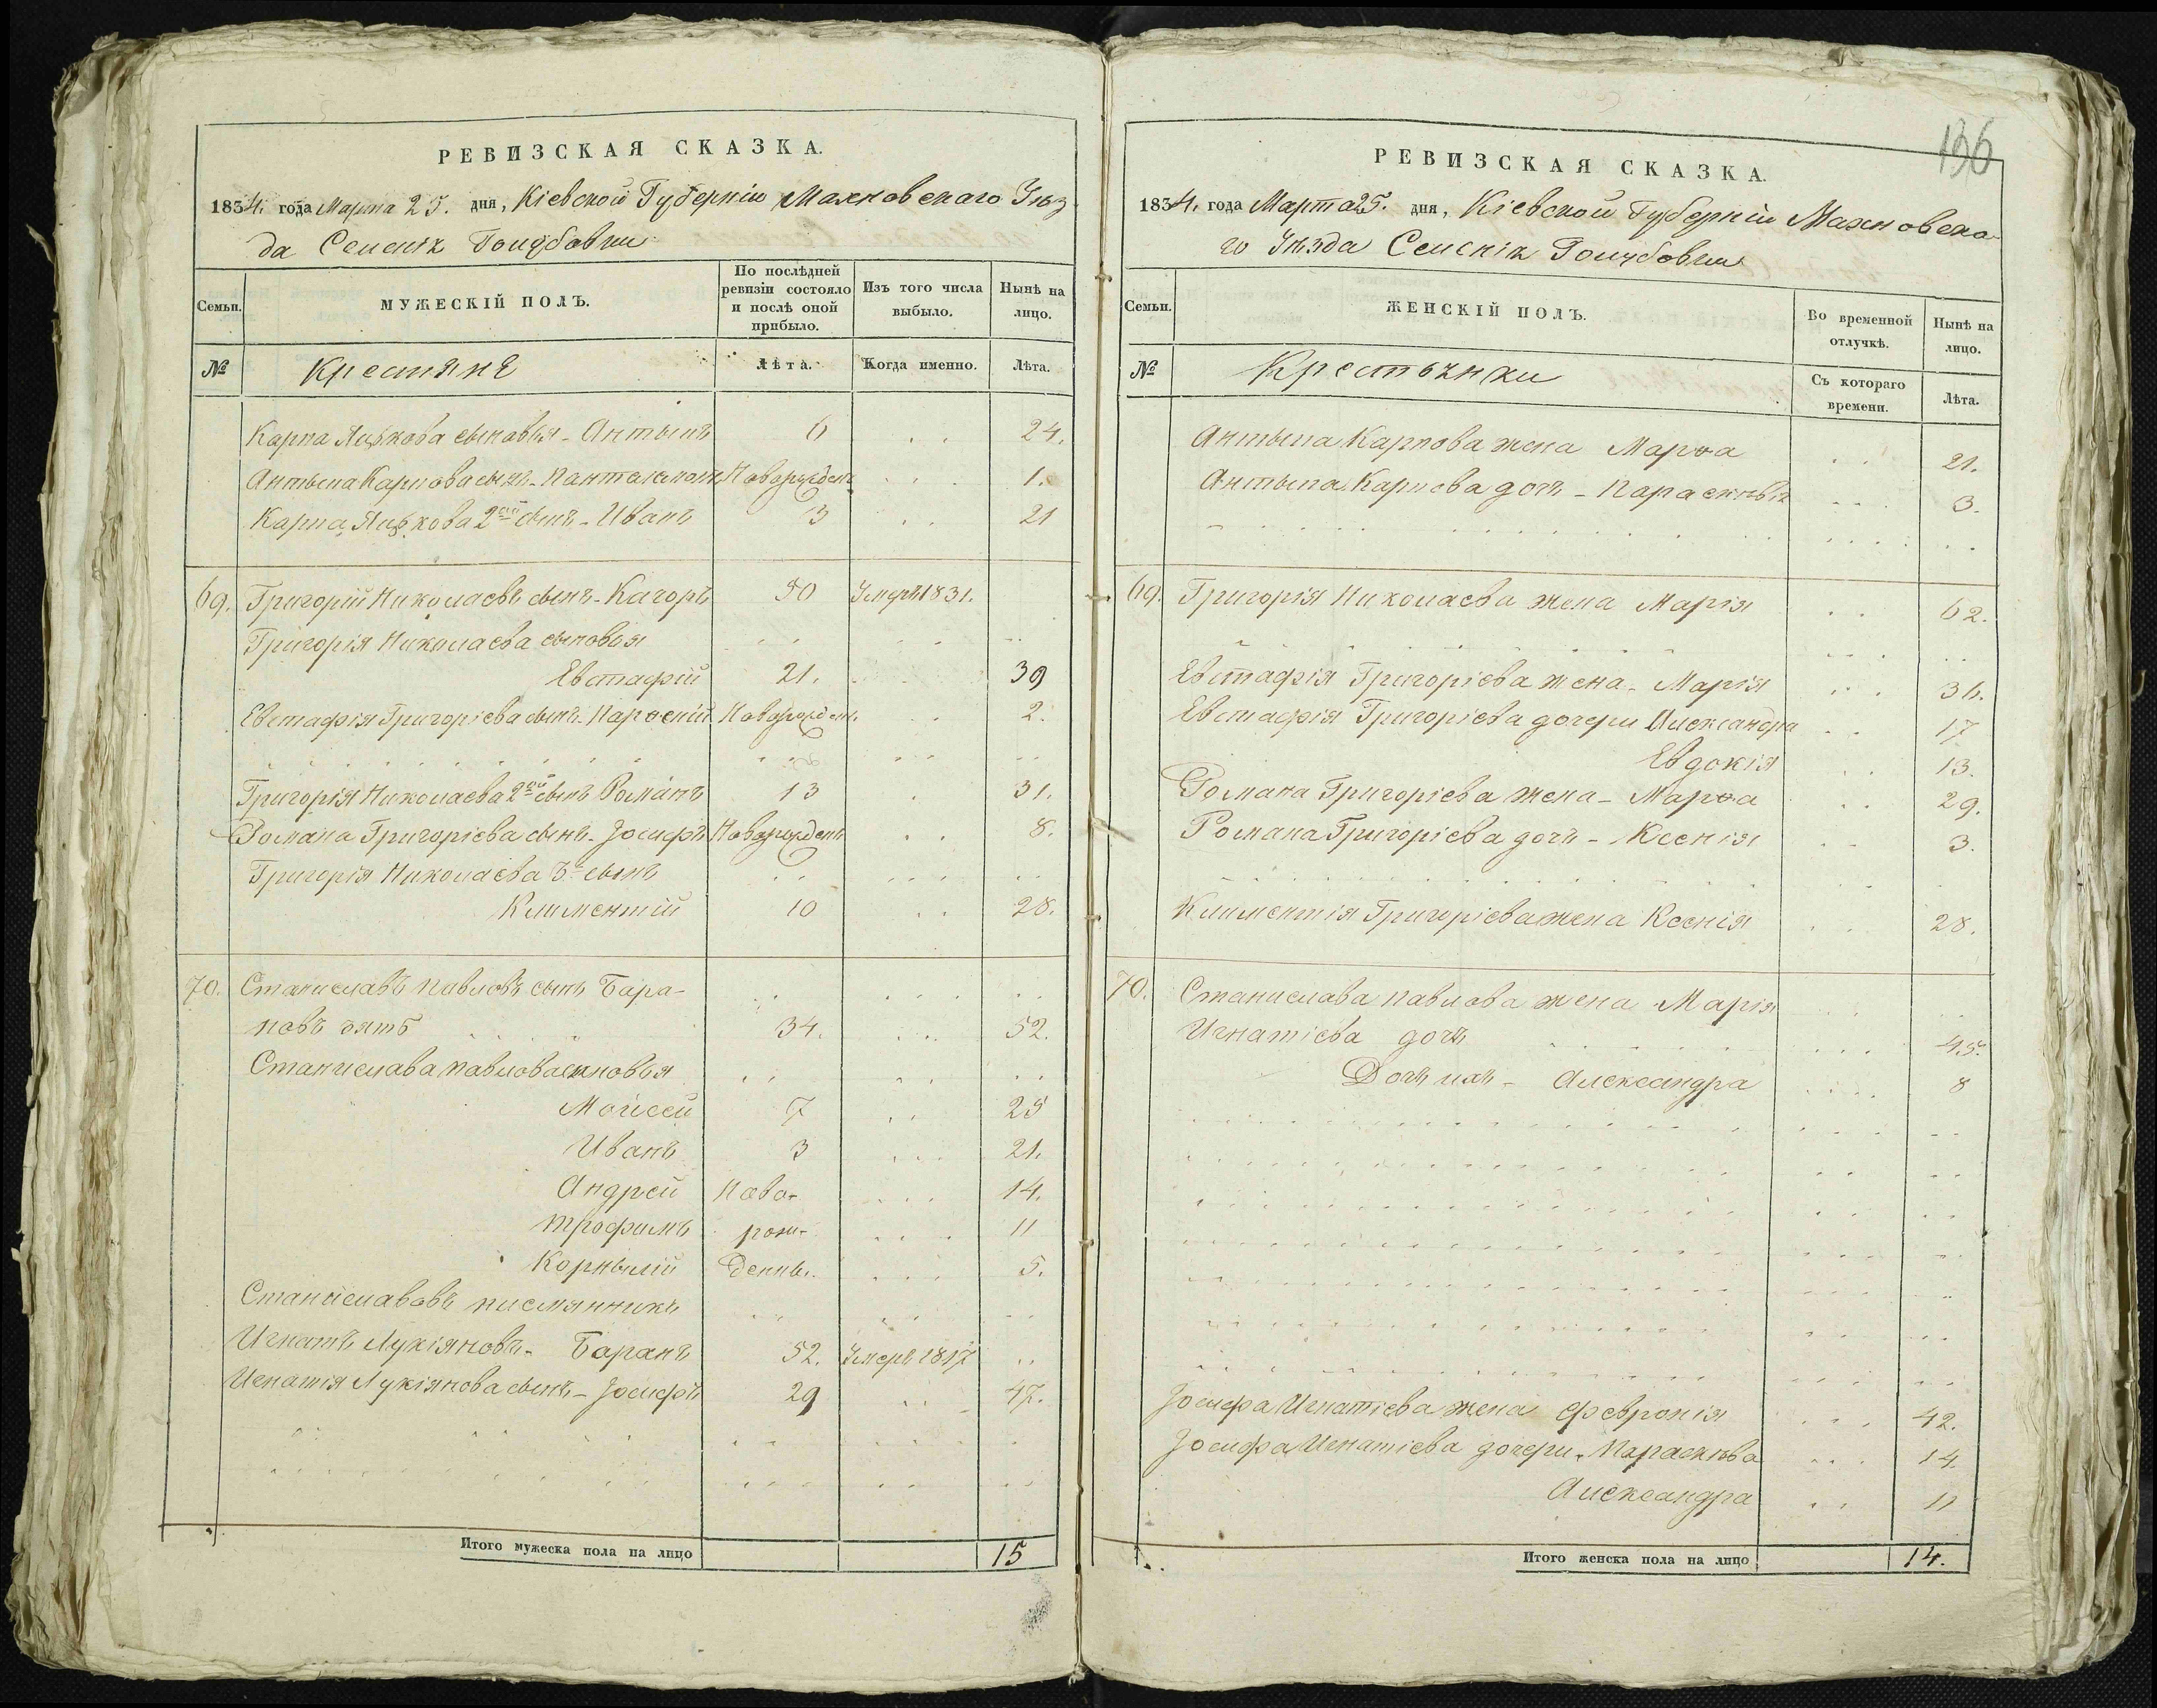 РЕВИЗСКАЯ СКАЗКА.
1834. года Марта 25. дня, Кіевской Губерніи Махновскаго Уѣз
да Селенія Голубовки
Семьи.
МУЖЕСКІЙ ПОЛЪ.
По послѣдней ревизіи состояло и послѣ оной прибыло.
Изъ того числа выбыло.
Нынѣ на лицо.
№
Крестяне
Лѣта.
Когда именно.
Лѣта.
Карпа сыновья - Антыпъ 6 24.
Антыпа Карпова сынъ - Новорожденъ 1.
Карпа 2ой сынъ - Иванъ 3 21
69. Григорій Николаевъ сынъ - Качоръ 50 Умеръ 1831.
Григорія Николаева сыновья
Евстафій 21. 39
Евстафія Григоріева сынъ - Парѳеній Новорожденъ 2.
Григорія Николаева 2ой сынъ Романъ 13 31.
Романа Григоріева сынъ - Іосифъ Новорожденъ 8.
Григорія Николаева 3й сынъ
Климентій 10 28.
70. Станиславъ Павловъ сынъ Бара-
новъ зять 34. 52.
Станислава Павлова сыновья
Мойсей 7 25
Иванъ 3 21.
Андрей Ново- 14.
Трофимъ рож- 11
Корнылій денны. 5.
Станіславовъ писмянникъ
Игнатъ Лукіяновъ - Баранъ 52. Умеръ 1817
Игнатія Лукіянова сынъ - Іосифъ 29 47.
Итого мужеска пола на лицо 15
136
РЕВИЗСКАЯ СКАЗКА.
1834. года Марта 25. дня, Кіевской Губерніи Махновска
го Уѣзда Селенія Голубовки
Семьи.
ЖЕНСКІЙ ПОЛЪ.
Во временной отлучкѣ.
Нынѣ на лицо.
№
Крестьянки
Съ котораго времени.
Лѣта.
Антыпа Карпова жена Марѳа 21.
Антыпа Карпова дочь - Параскевія 3.
69. Григорія Николаева жена Марія 62.
Евстафія Григоріева жена - Марія 36.
Евстафія Григоріева дочери Александра 17
Евдокія 13.
Романа Григоріева жена - Марѳа 29.
Романа Григоріева дочь - Ксенія 3.
Климентія Григоріева жена Ксенія 28.
70. Станислава Павлова жена Марія
Игнатіева дочь 45.
Дочь ихъ - Александра 8
Іосифа Игнатіева жена Февронія 42.
Іосифа Игнатіева дочери - Параскѣва 14.
Александра 11
Итого женска пола на лицо 14.